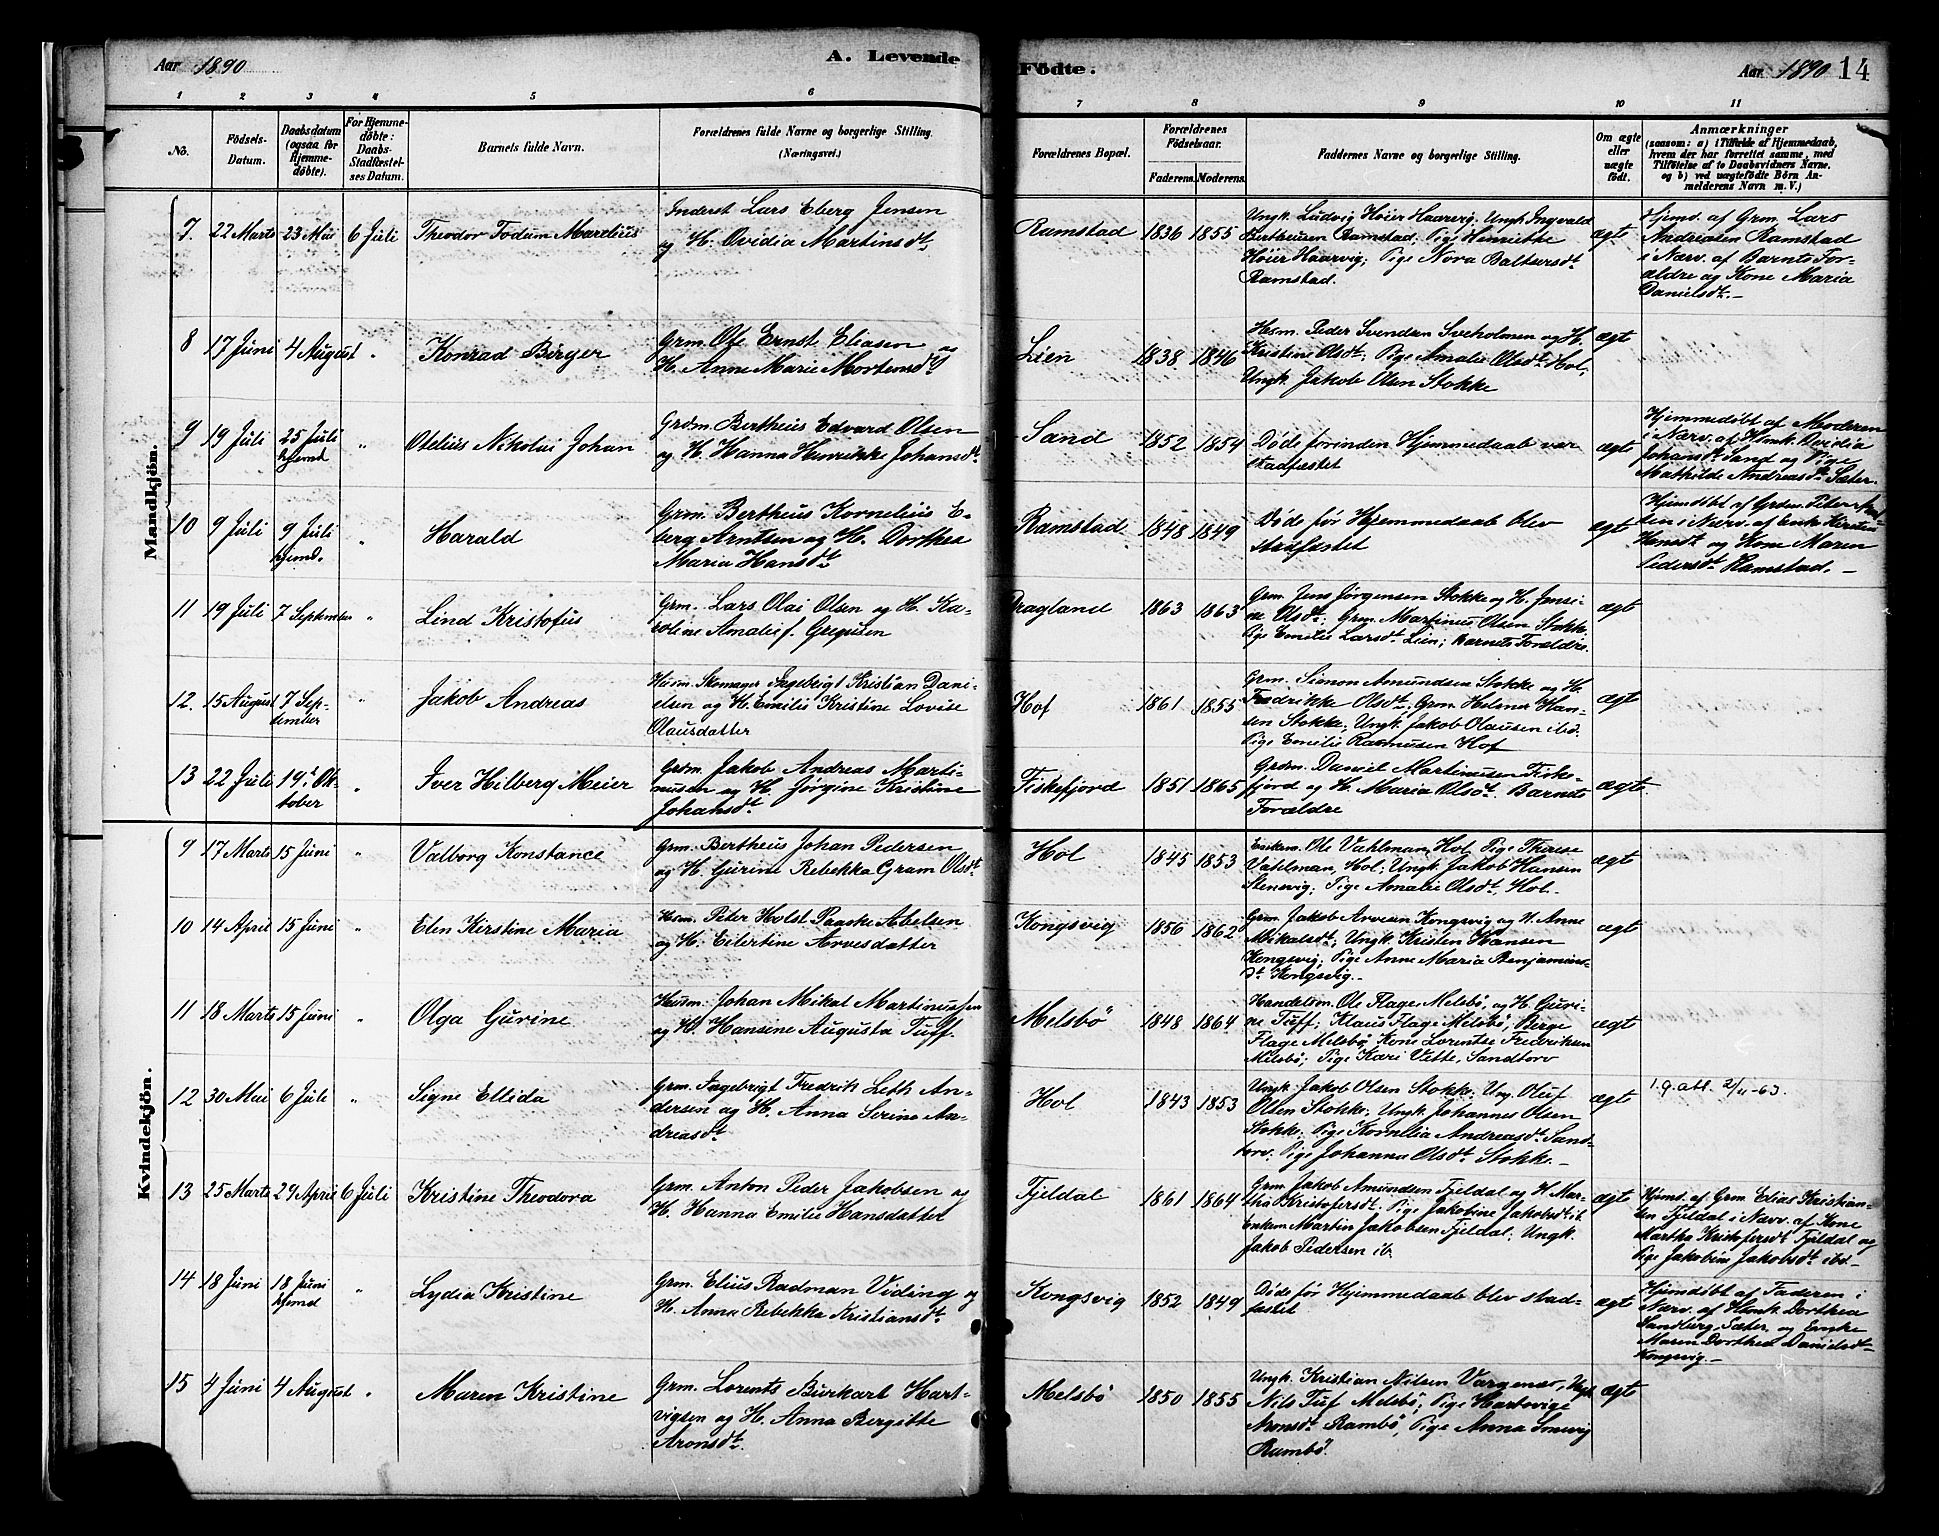 Aar 1890
A. Levende
Fødte.
Aar 1890 14
1 2 3 4 5 6 7 8 9 10 11
No.
Födsels-
Datum.
Daabsdatum
(ogsaa for
Hjemme-
døbte).
For Hjemme-
døbte:
Daabs-
Stadfæstel-
ses Datum.
Barnets fulde Navn.
Forældrenes fulde Navne og borgerlige Stilling.
(Næringsvei.)
Forældrenes Bopæl.
Forældrenes
Födselsaar.
Faderens. Moderens.
Faddernes Navne og borgerlige Stilling.
Om ægte
eller
uægte
født.
Anmærkninger
(saasom: a) i Tilfælde af Hjemmedaab,
hvem der har forrettet samme, med
Tilføielse af to Daabsvidners Navne.
og b) ved uægtefødte Börn An-
melderens Navn m. V.)
Mandkjön.
7. 22 Marts 23 Mai 6 Juli Theodor Todum Marelius
Inderst Lars Eberg Jensen
og H. Ovidia Martinsdt.
Ramstad 1836 1855
Ungk. Ludvig Høier Haarvig, Ungk Ingvald
Bertheusen Ramstad. Pige Henriette
Høier Haarvig; Pige Nora Baltsersdt.
Ramstad.
ægte
Hjemd. af Grm. Lars
Andreasen Ramstad
i Nærv. af Barnets For-
ældre og Kone Maria
Danielsdt. —
8 17 Juni 4 August " Konrad Birger
Grm. Ole Ernst Eliasen og
H. Anne Marie Mortensdt
Lien 1838 1846
Hsm. Peder Svendsen Sveholmen og H.
Kristine Olsdt; Pige Amalie Olsdt. Hol;
Ungk. Jakob Olsen Stokke
ægte
9 19 Juli 25 Juli " Otelius Nikolai Johan
hjemd
Grdm. Bertheus Edvard Olsen
og H. Hanna Henrikke Johansdt.
Sand 1852 1854
Døde forinden Hjemmedaab var
stadfæstet
ægte
Hjemmedøbt af Moderen
i Nærv. af Ovidia
Johansdt. Sand og Pige
Mathilde Andreasdt. Sæter.
10 9 Juli 9 Juli " Harald
hjemd.
Grm. Bertheus Kornelius E-
berg Arntsen og H. Dorthea
Maria Hansdt.
Ramstad. 1848 1849
Døde før Hjemmedaab blev
stadfæstet
ægte
Hjemdøbt af Grdm. Peter
i Nærv. af Enke
Hansdt og Kone Maren
Pedersdt. Ramstad. —
11 19 Juli 7 September " Lind Kristofus
Grm. Lars Olai Olsen og H. Ka-
roline Amalie f. Gregusen
Dragland 1863 1863
Grm. Jens Jørgensen Stokke og H. Jensi-
ne Olsdt; Grm. Martinus Olsen Stokke.
Pige Emilie Larsdt. Lien; Barnets Forældre.
ægte
12. 15 August 7 Sep-
tember
" Jakob Andreas
Husm. Skomager Ingebrigt Kristian Dani-
elsen og H. Emilie Kristine Lovise
Olausdatter
Hof 1861 1855
Grm. Simon Amundsen Stokke og H.
Fredrikke Olsdt; Grm. Helmer Han-
sen Stokke, Ungk. Jakob Olausen ibd.
Pige Emilie Rasmusen Hof
ægte
13 22 Juli 19. Ok-
tober
" Iver Hilberg Meier
Grdm. Jakob Andreas Marti-
nusen og H. Jørgine Kristine
Johansdt.
Fiskefjord 1851 1865
Grdm. Daniel Martinusen Fiske-
fjord og H. Maria Olsdt. Barnets
Forældre
ægte.
Kvindekjön.
9 17 Marts 15 Juni " Valborg Konstance
Grm. Bertheus Johan Pedersen
og H. Gurine Rebekka Gram Olsdt.
Hol 1845 1853
Enkem. Ole Vahlman, Hol, Pige Therese
Vahlman, Hol; Ungk. Jakob Hansen
Stensvig; Pige Amalie Olsdt. Hol.
ægte
10 14 April 15 Juni " Elen Kerstine Maria
Hsm. Peter Holst Paaske Abelsen
og H. Eilertine Arvesdatter
Kongsvig 1856 1862
Grm. Jakob Arvesen Kongsvig og H. Anne
Mikalsdt; Ungk. Kristen Hansen
Kongsvig; Pige Anne Maria Benjamins-
dt. Kongsvig. —
ægte
11 18 Marts 15 Juni " Olga Gurine
Husm. Johan Mikal Martinussen
og H. Hansine Augusta Tuff.
Melsbö 1848 1864
Handelsm. Ole Flage, Melsbö, og H. Guri-
ne Tuff; Klaus Flage Melsbö, Berge
Flage Melsbö, Kone Lorentse Fredriksen
Melsbö; Pige Kari Vette, Sandtorv
ægte
12 30 Mai 6 Juli " Signe Ellida
Grm. Ingebrigt Fredrik Leth An-
dersen og H. Anna Serine An-
dreasdt.
Hol 1843 1853
Ungk. Jakob Olsen Stokke; Ung. Oluf
Olsen Stokke; Ungk. Johannes Olsen
Stokke; Pige Kornelia Andreasdt. Sand-
torv. Pige Johanna Olsdt. Stokke. —
ægte
1.g. att. 2/11-63.
13 25 Marts 29 April 6 Juli Kristine Theodora
Grm. Anton Peder Jakobsen og
H. Hanna Emilie Hansdatter
Fjeldal 1861 1864
Grm. Jakob Amundsen Fjeldal og H. Mar-
tha Kristofersdt. Pige Jakobine Jakobsdt ib.
Enkem Martin Jakobsen Fjeldal; Ungk.
Jakob Pedersen ib.
ægte
Hjemd. af Grm. Elias Kristian-
sen Fjeldal i Nærv. af Kone
Martha Kristofersdt. Fjeldal og
Pige Jakobine Jakobsdt ibd —
14 18 Juni 18 Juni " Lydia Kristine
hjemd
Grm. Elius Radman Viding og
H. Anna Rebekka Kristiansdt.
Kongsvig 1852 1849
Døde før Hjemmedaab blev stad-
fæstet
ægte
Hjemdøbt af Faderen i
Nærv. af Dorthea
Sandberg, Sæter og Enke
Maren Dorthea Danielsdt.
Kongsvig. —
15 4 Juni 4 August " Maren Kristine
Grm. Lorents Burkart Hart-
vigsen og H. Anna Bergitte
Aronsdt.
Melsbö 1850 1855
Ungk. Kristian Nilsen Vargenes, Ungk.
Nils Tuf Melsbö; Pige Hartvige
Aronsdt. Rambö, Pige Anna
Rambö.
ægte